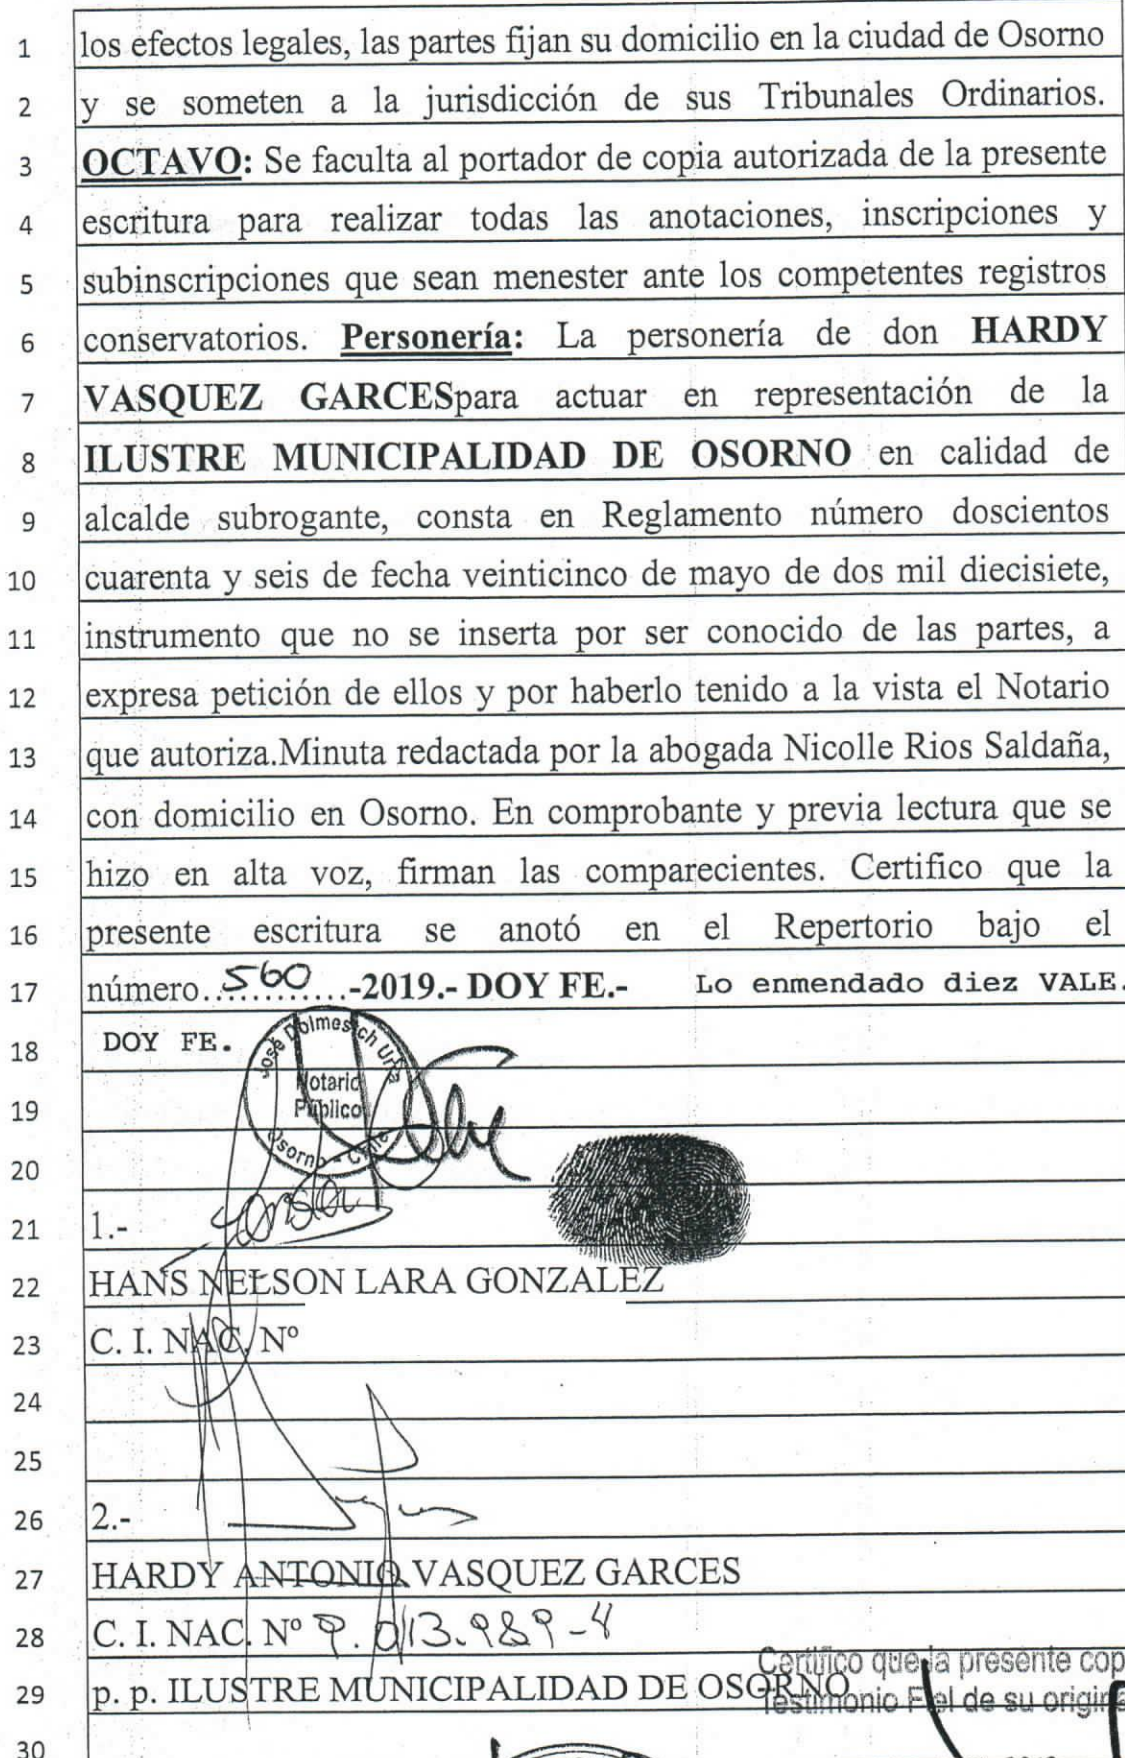 1 los efectos legales, las partes fijan su domicilio en la ciudad de Osorno
2 y se someten a la jurisdicción de sus Tribunales Ordinarios.
3 OCTAVO: Se faculta al portador de copia autorizada de la presente
4 escritura para realizar todas las anotaciones, inscripciones y
5 subinscripciones que sean menester ante los competentes registros
6 conservatorios. Personería: La personería de don HARDY
7 VASQUEZ GARCESpara actuar en representación de la
8 ILUSTRE MUNICIPALIDAD DE OSORNO en calidad de
9 alcalde subrogante, consta en Reglamento número doscientos
10 cuarenta y seis de fecha veinticinco de mayo de dos mil diecisiete,
11 instrumento que no se inserta por ser conocido de las partes, a
12 expresa petición de ellos y por haberlo tenido a la vista el Notario
13 que autoriza.Minuta redactada por la abogada Nicolle Rios Saldaña,
14 con domicilio en Osorno. En comprobante y previa lectura que se
15 hizo en alta voz, firman las comparecientes. Certifico que la
16 presente escritura se anotó en el Repertorio bajo el
17 número...560...-2019.- DOY FE.- Lo enmendado diez VALE.
18 DOY FE.
José Dolmestch Urra
Notario
Público
Osorno - Chile
19
20
21 1.-
22 HANS NELSON LARA GONZALEZ
23 C. I. NAC. Nº
24
25
26 2.-
27 HARDY ANTONIO VASQUEZ GARCES
28 C. I. NAC. Nº 9.013.989-4
Certifico que la presente cop
29 p. p. ILUSTRE MUNICIPALIDAD DE OSORNO
Testimonio Fiel de su origina
30